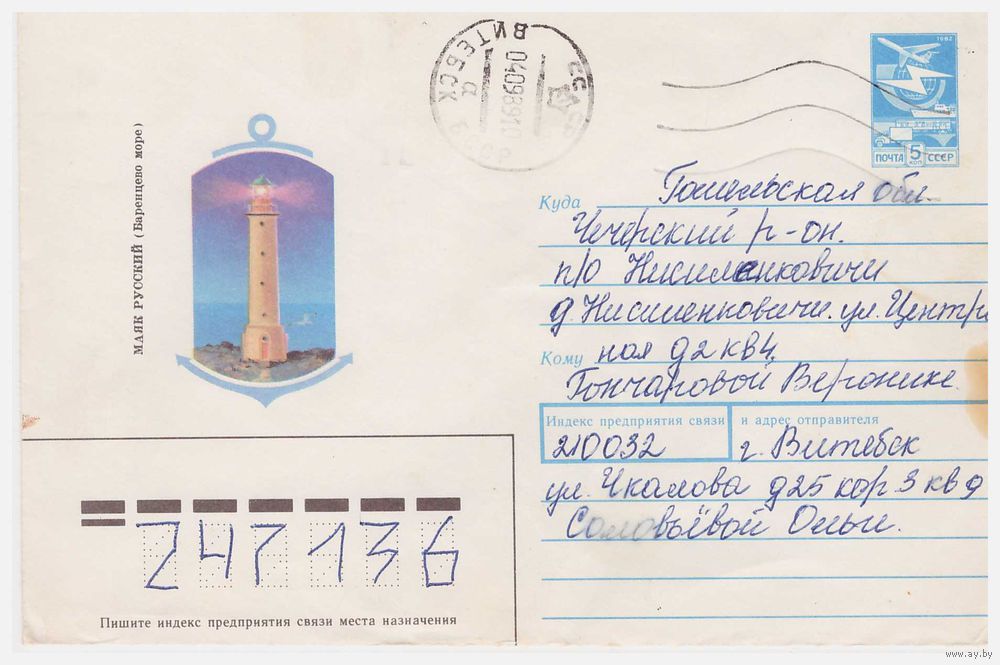 ВИТЕБСК
СССР
04098910
а
1982
ПОЧТА 5 КОП СССР
МАЯК РУССКИЙ (Баренцево море)
Куда Гомельская обл.
Чечерский р-он.
п/о Нисимковичи
д Нисименковичи. ул. Центра
Кому ная д2 кв4.
Гончаровой Веронике.
Индекс предприятия связи и адрес отправителя
210032 г. Витебск
ул. Чкалова д25 кор 3 кв 9
Соловьёвой Ольги.
247136
Пишите индекс предприятия связи места назначения
www.ay.by